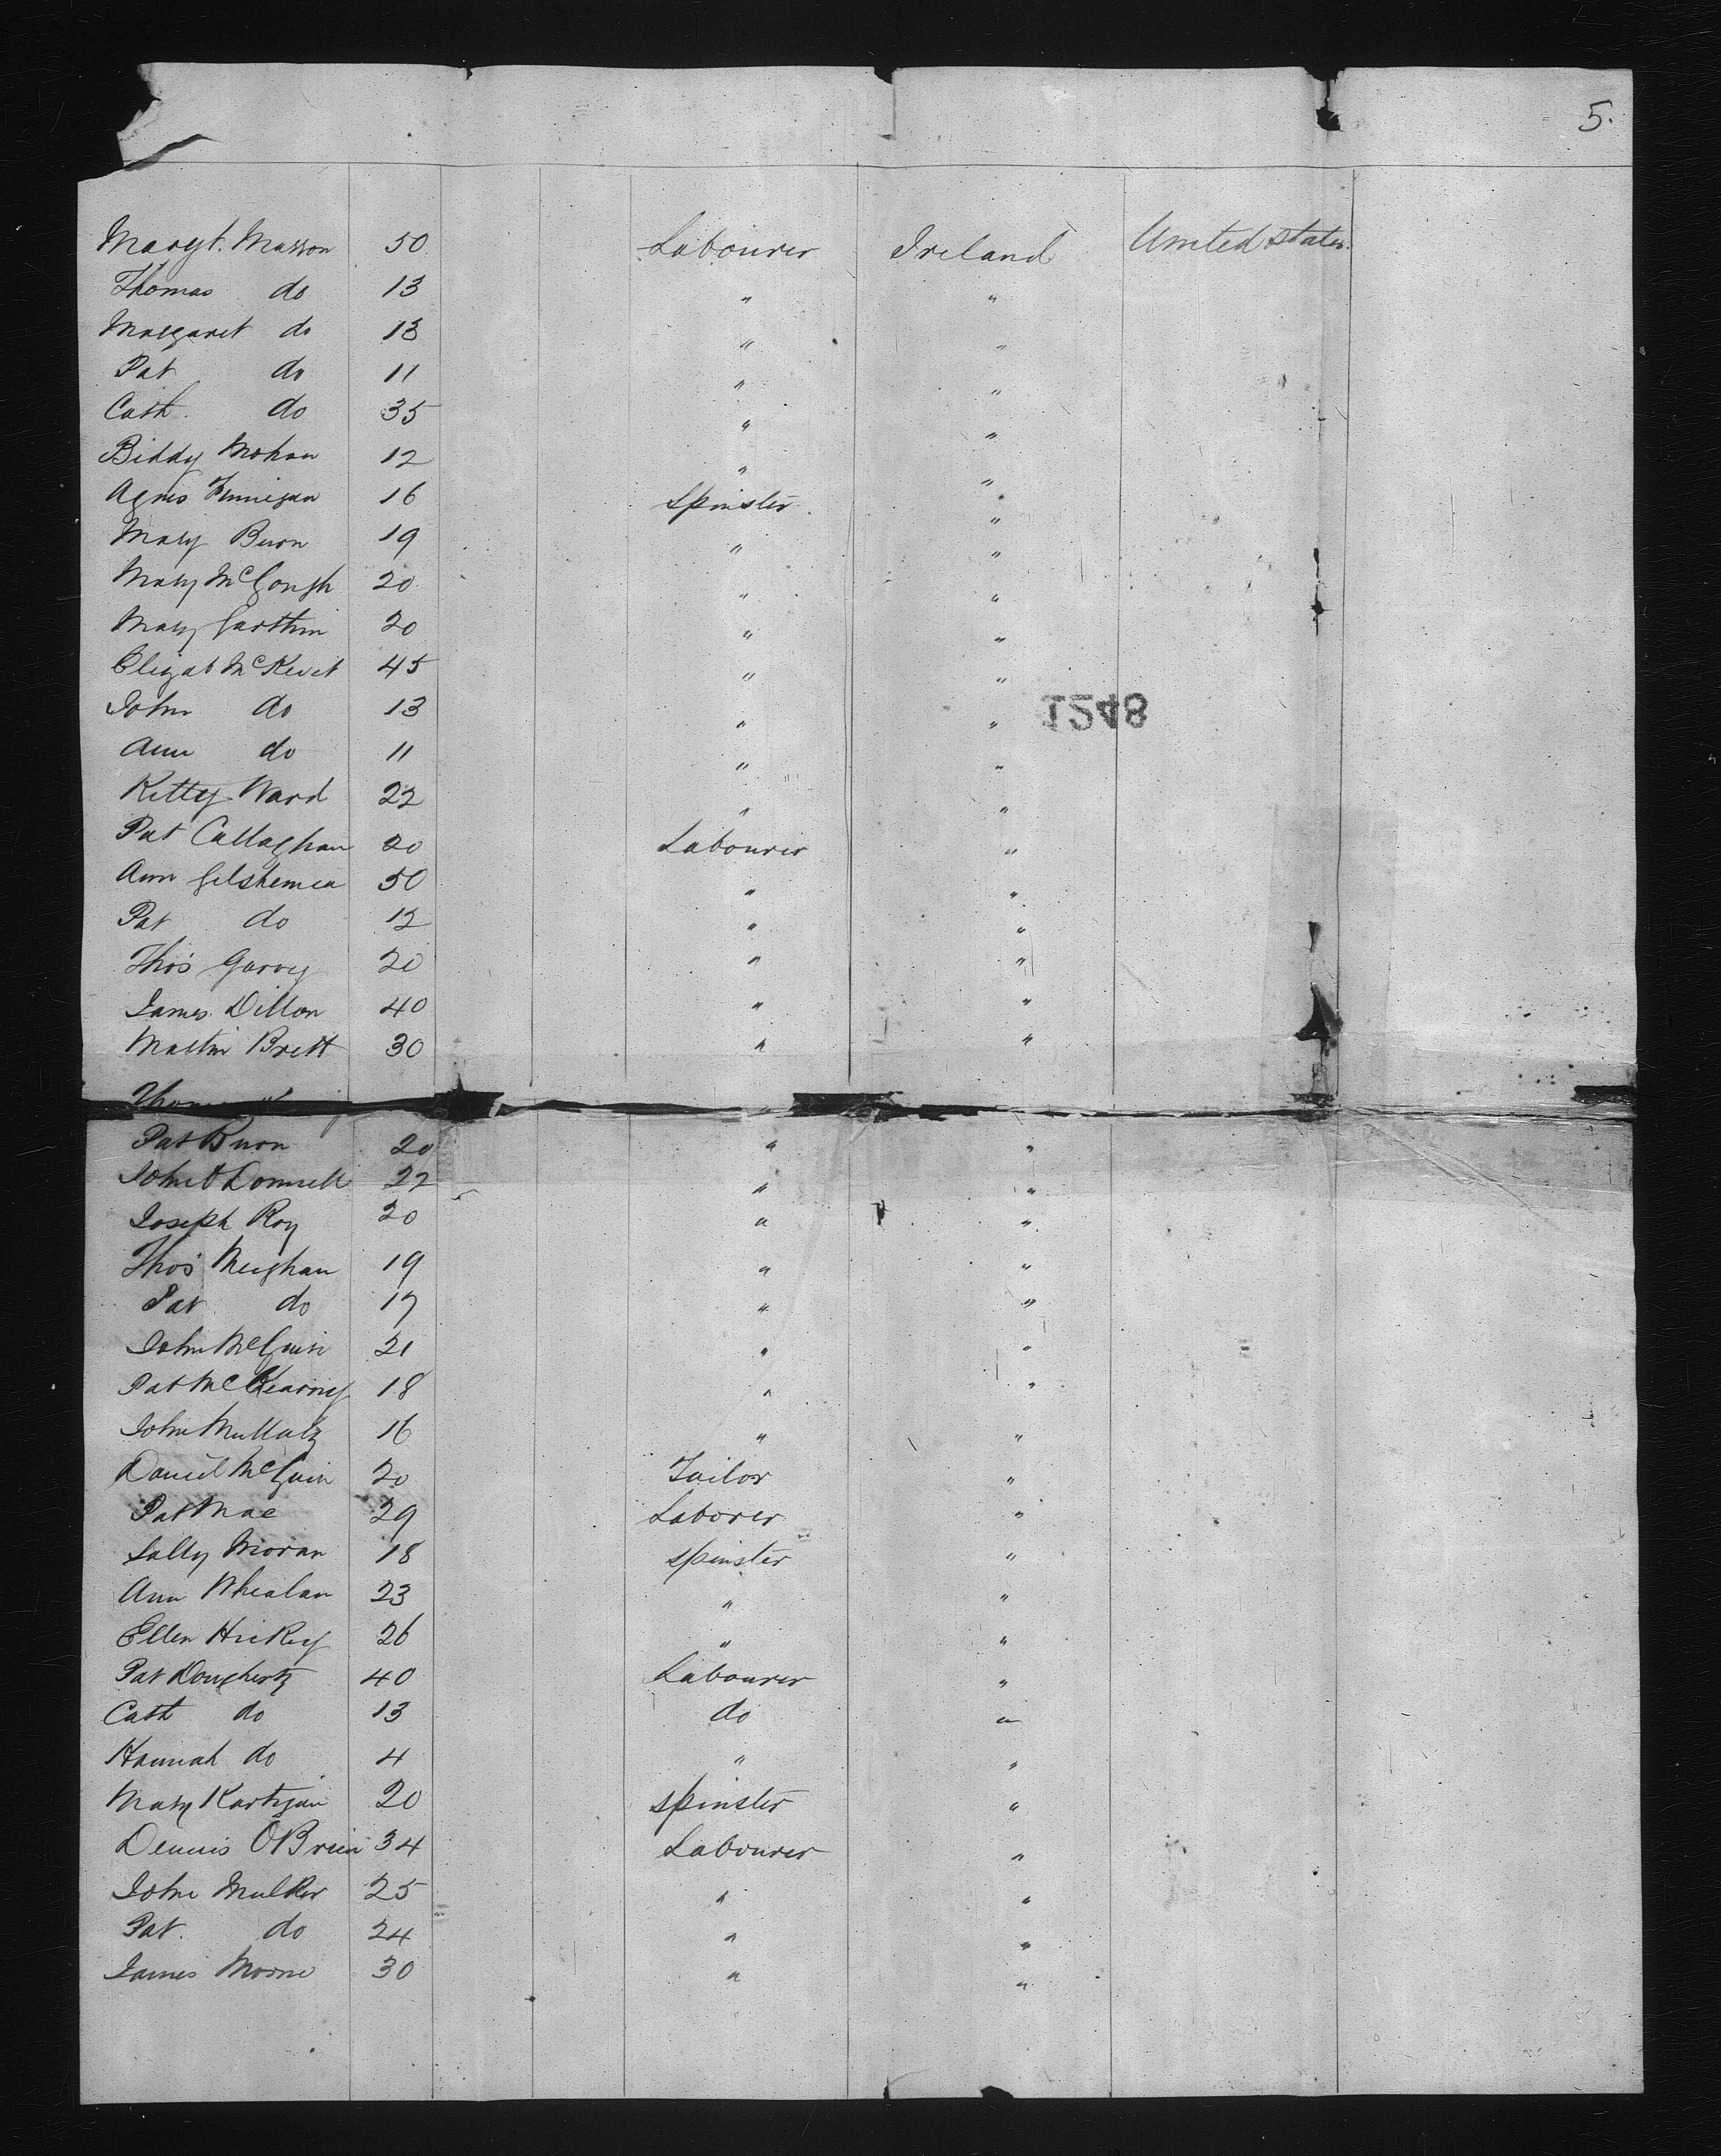 5.
Margt. Masson 50 Labourer Ireland United States.
Thomas do 13 " "
Margaret do 13 " "
Pat do 11 " "
Cath. do 35 " "
Biddy Mohan 12 " "
Agnes Finnigan 16 Spinster "
Mary Burn 19 " "
Mary McGough 20 " "
Mary 20 " "
Elizab McKevit 45 " "
John do 13 " "
Ann do 11 " "
Kitty Ward 22 " "
Pat Callaghan 20 Labourer "
Ann 50 " "
Pat do 12 " "
Thos Garvey 20 " "
James Dillon 40 " "
Martin Brett 30 " "
Pat Burn 20 " "
John O Donnell 22 " "
Joseph Roy 20 " "
Thos Meighan 19 " "
Pat do 17 " "
John McGuin 21 " "
Pat McKearney 18 " "
John Mullaly 16 " "
Daniel McGuin 20 Tailor "
Pat Mae 29 Laborer "
Sally Moran 18 Spinster "
Ann Whealan 23 " "
Ellen Hickey 26 " "
Pat Dougherty 40 Labourer "
Cath do 13 do "
Hannah do 4 " "
Mary Kartigan 20 Spinster "
Dennis O'Brien 34 Labourer "
John Mulker 25 " "
Pat. do 24 " "
James Moore 30 " "
1248